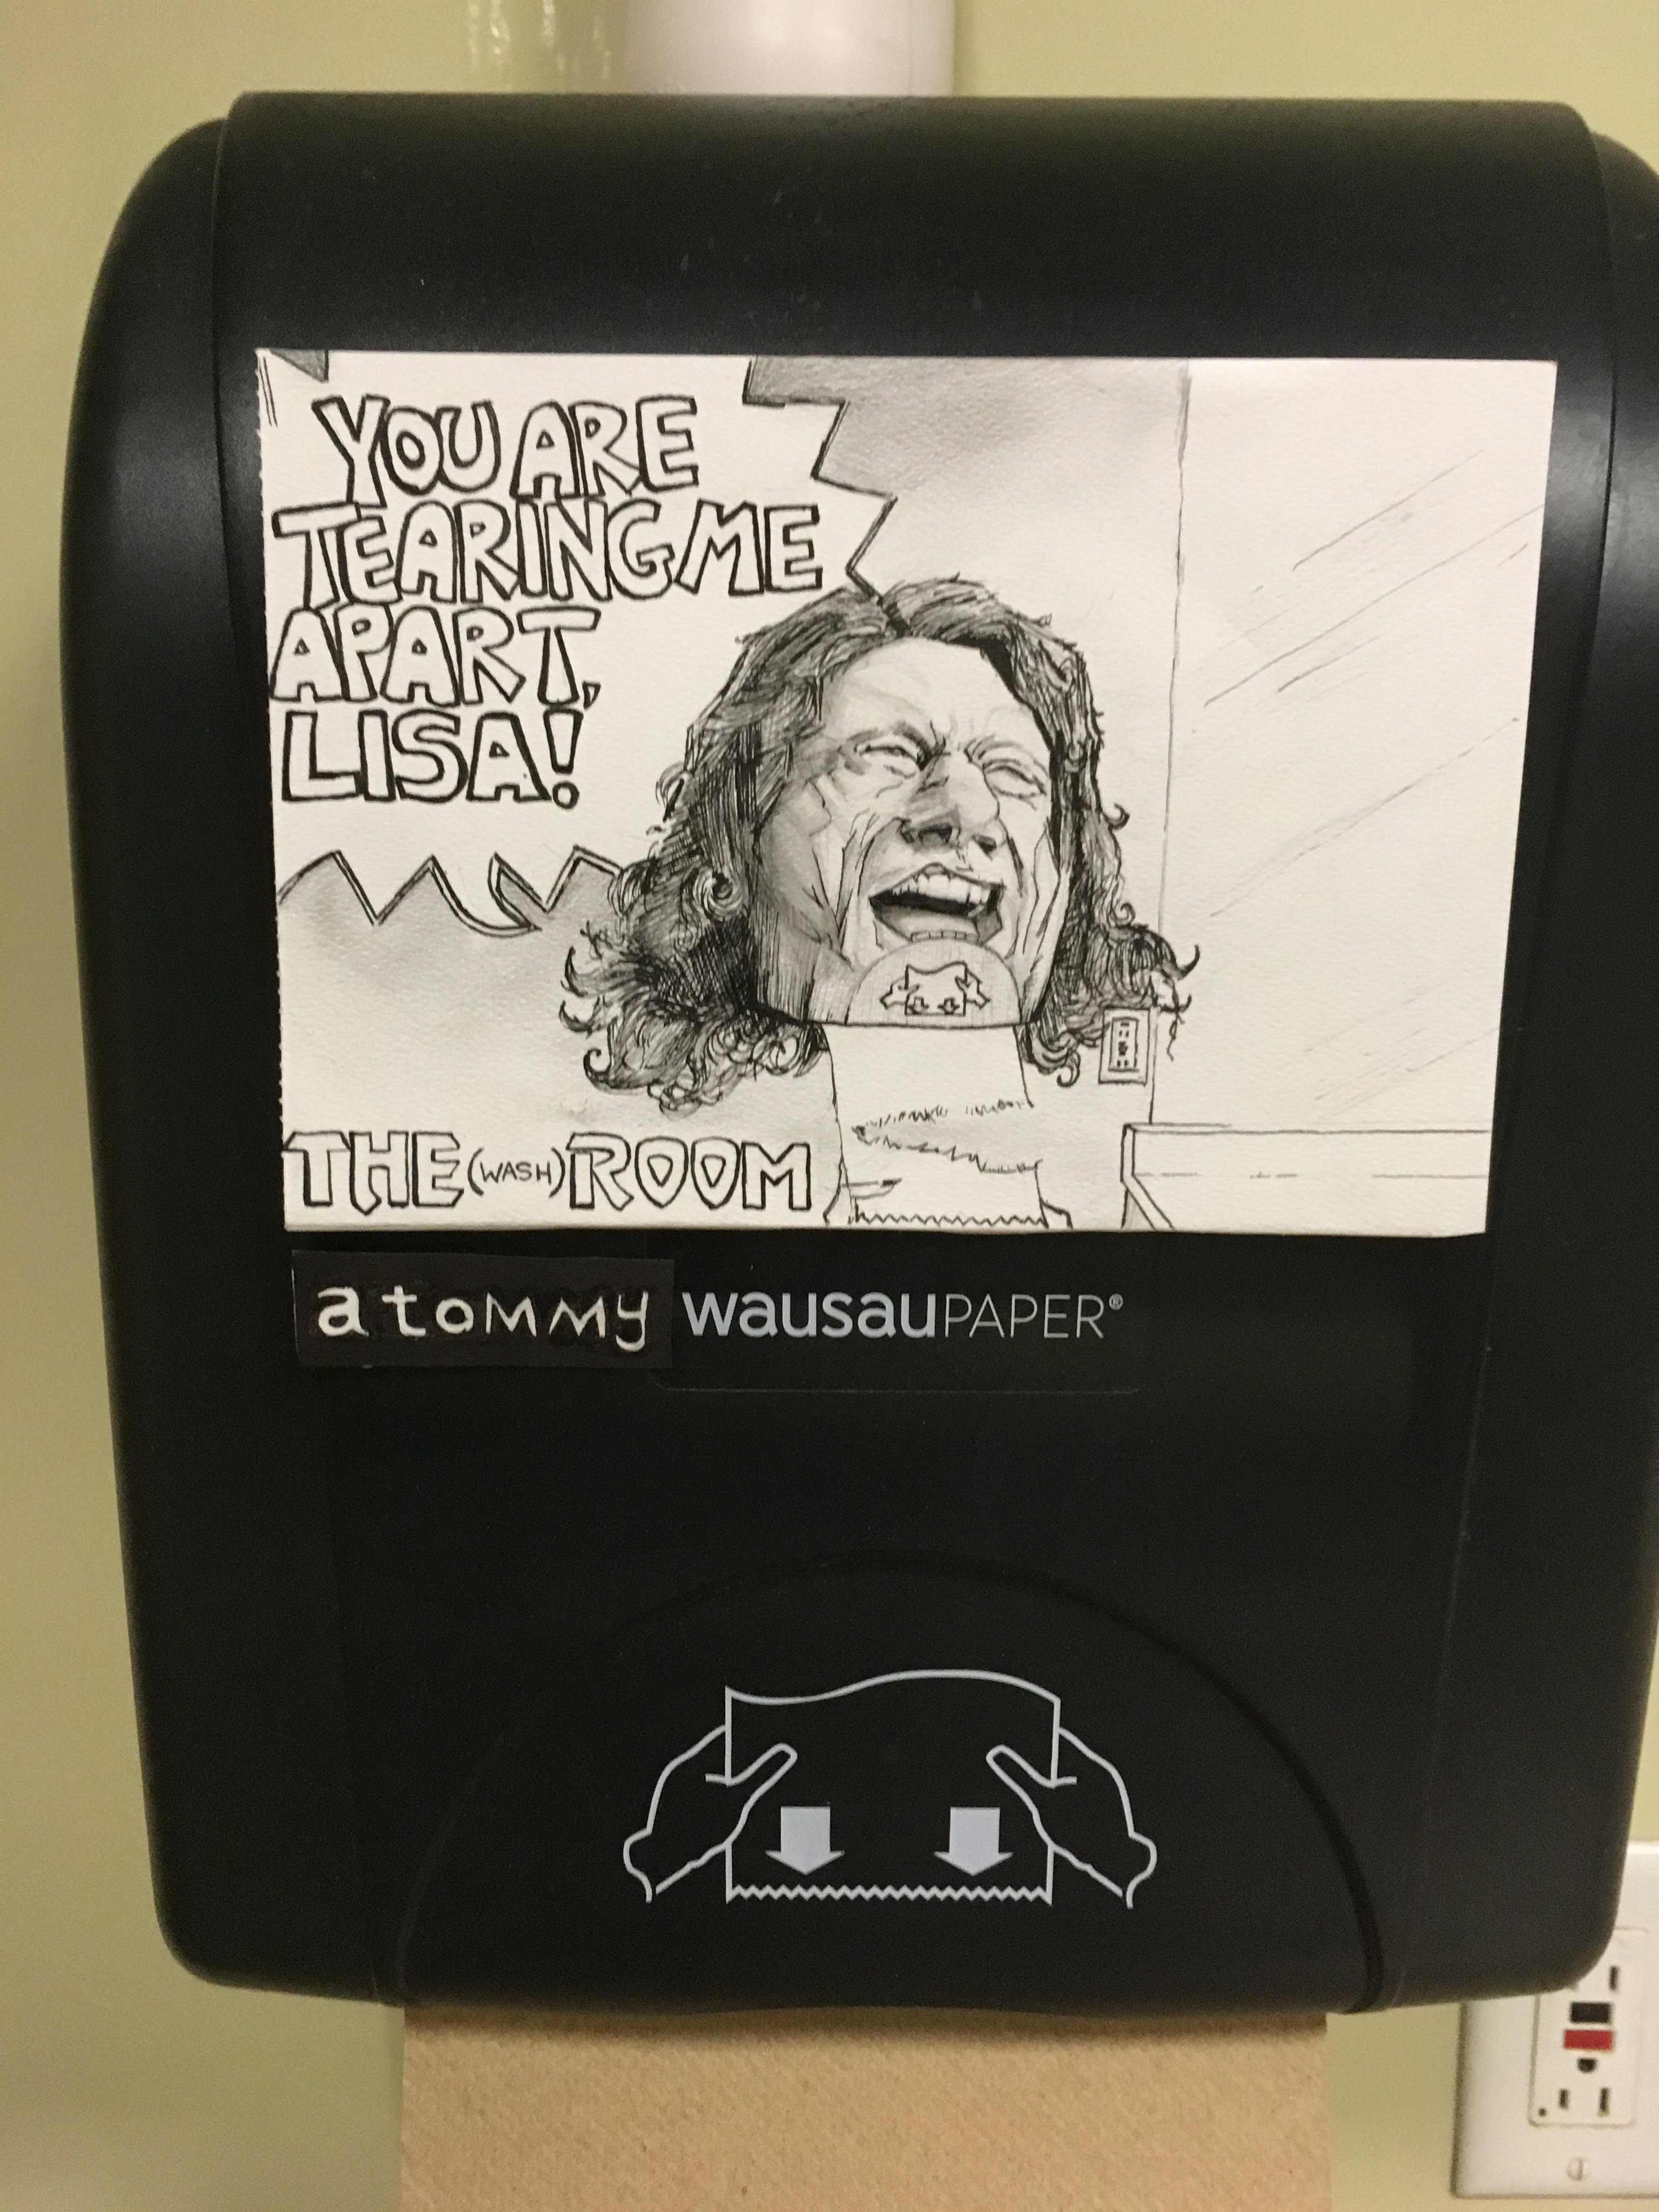 YOU ARE
TEARING ME
APART,
LISA!
THE (WASH) ROOM
a tommy wausauPAPER®